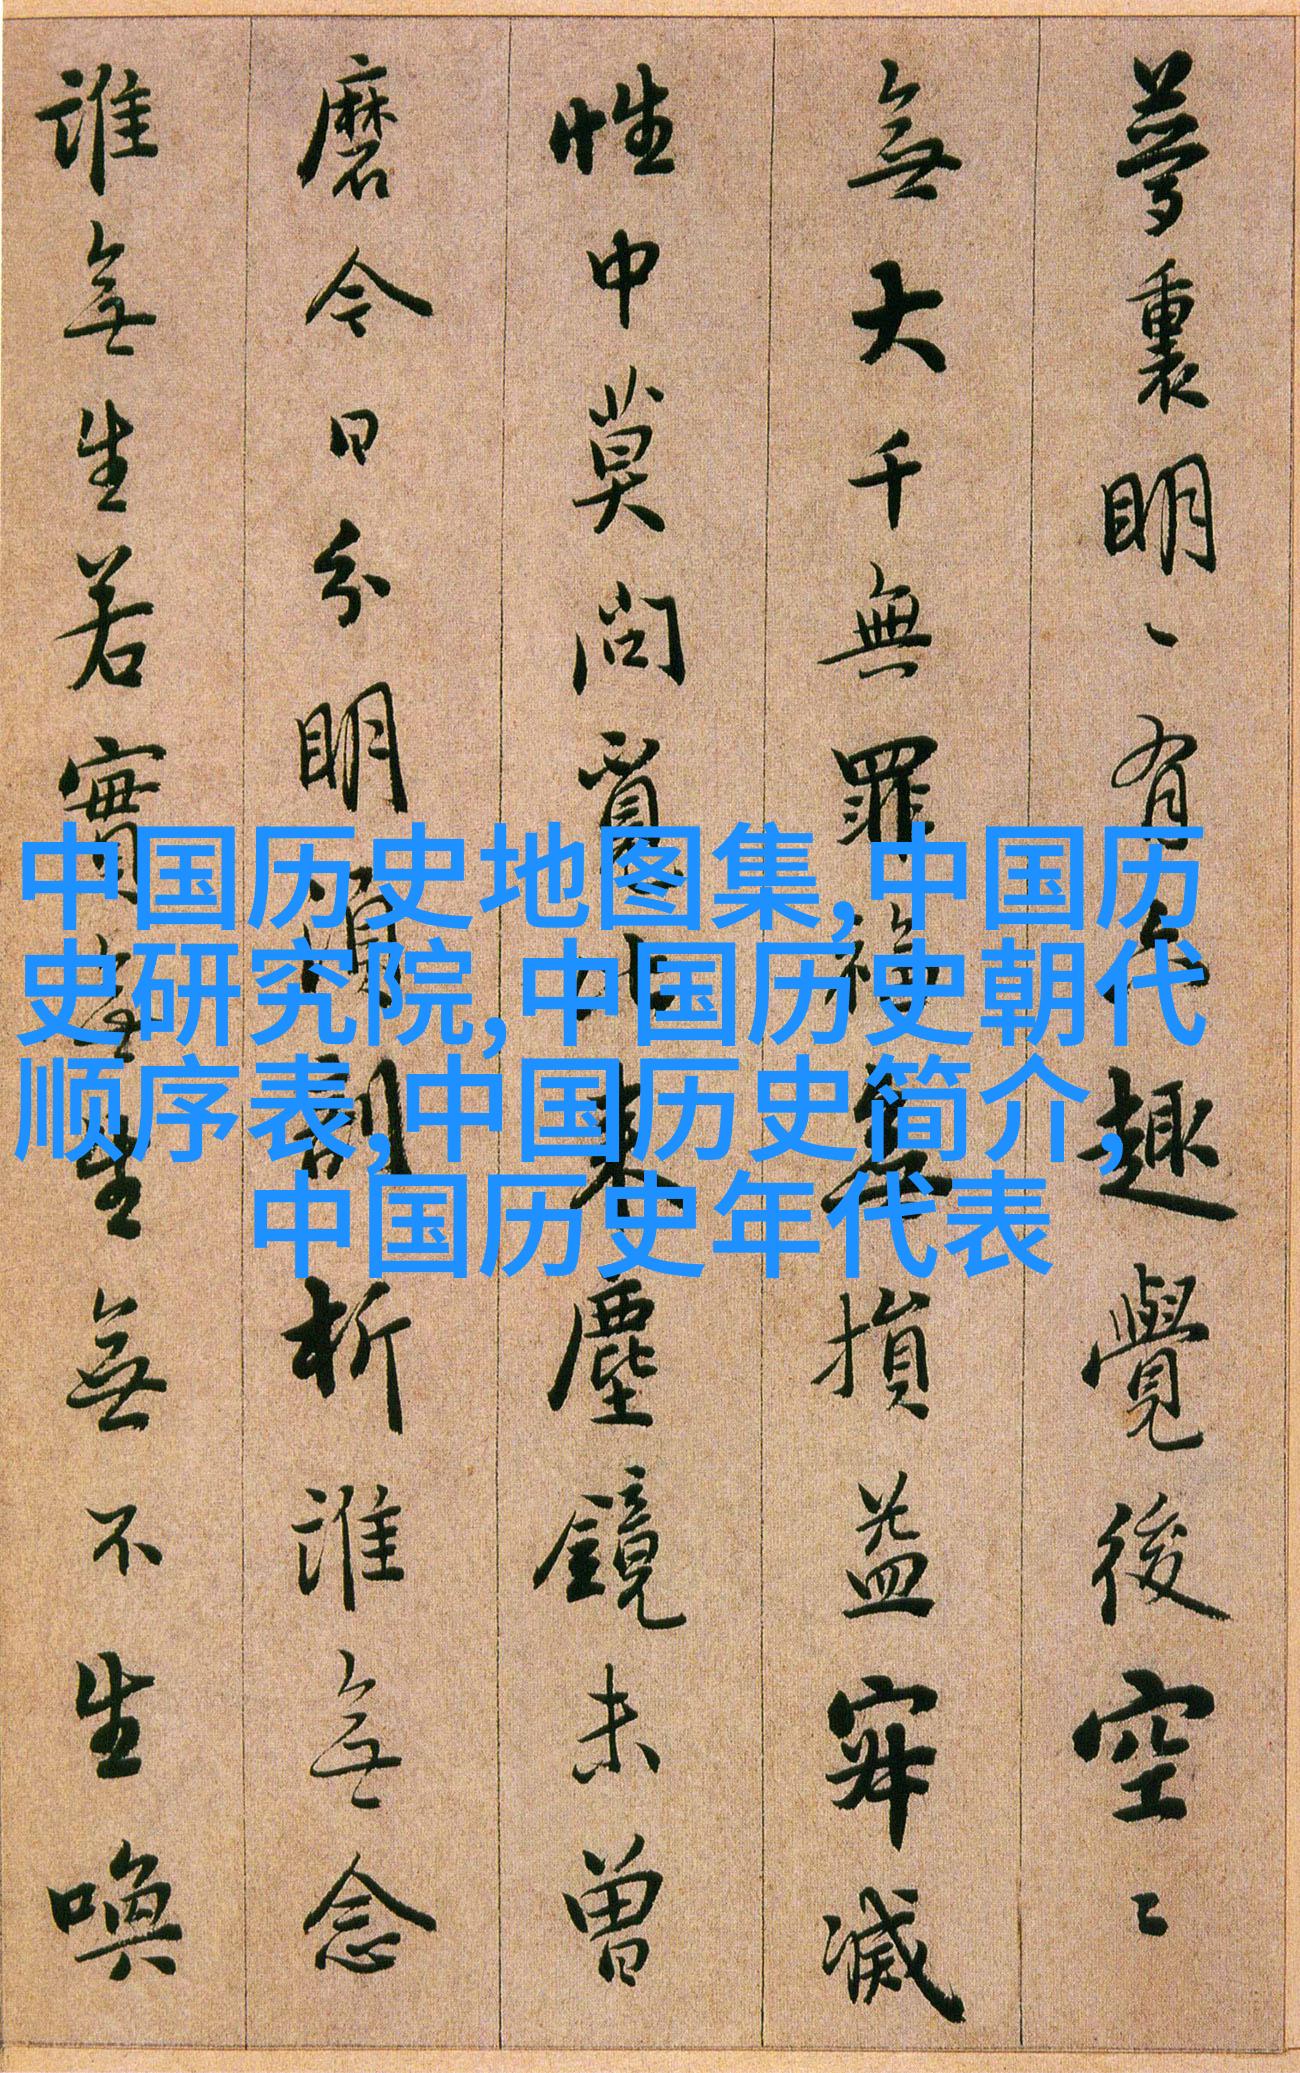 夢裏明丶有六趣覺後空〻
無大千無罪福無損益寂滅
性中莫問覓比來塵鏡未曾
磨今日分明須剖析誰無念
誰無生若實無生無不生喚
中国历史地图集,中国历
史研究院,中国历史朝代
顺序表,中国历史简介,
中国历史年代表